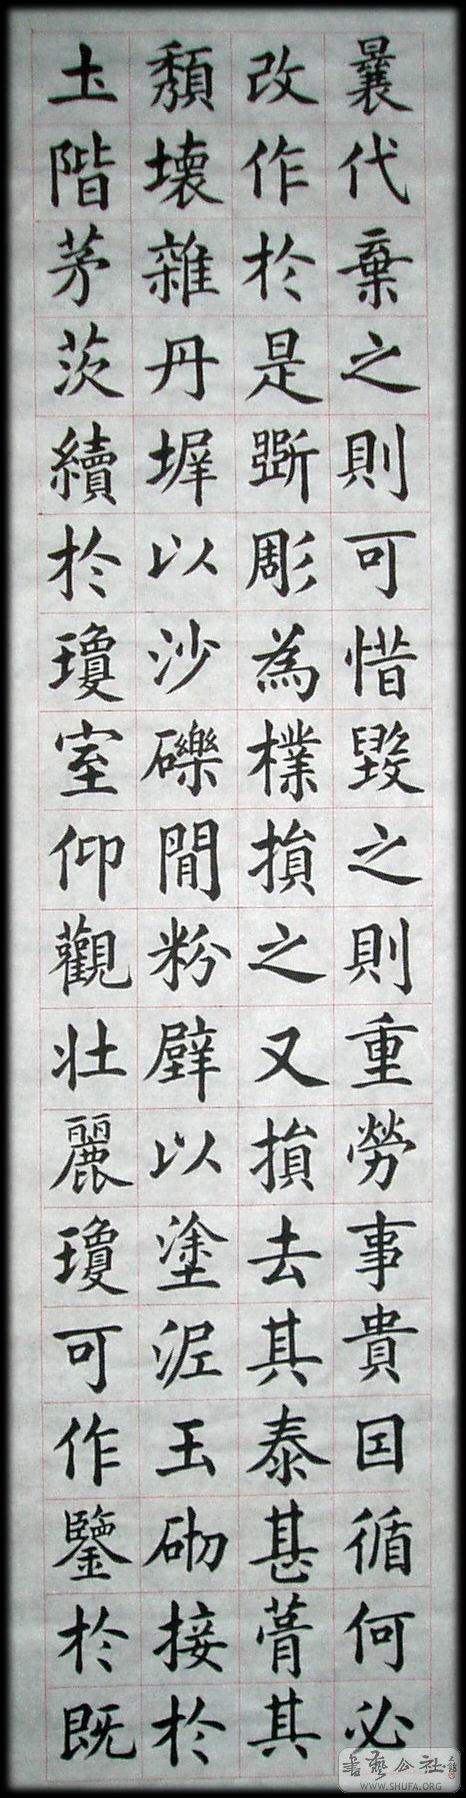 曩代棄之則可惜毀之則重勞事貴囙循何必
改作於是斲彫為樸損之又損去其泰甚葺其
頽壞雜丹墀以沙礫閒粉壁以塗泥玉砌接於
土階茅茨續於瓊室仰觀壯麗瓊可作鑒於既
書藝公社
WWW.SHUFA.ORG